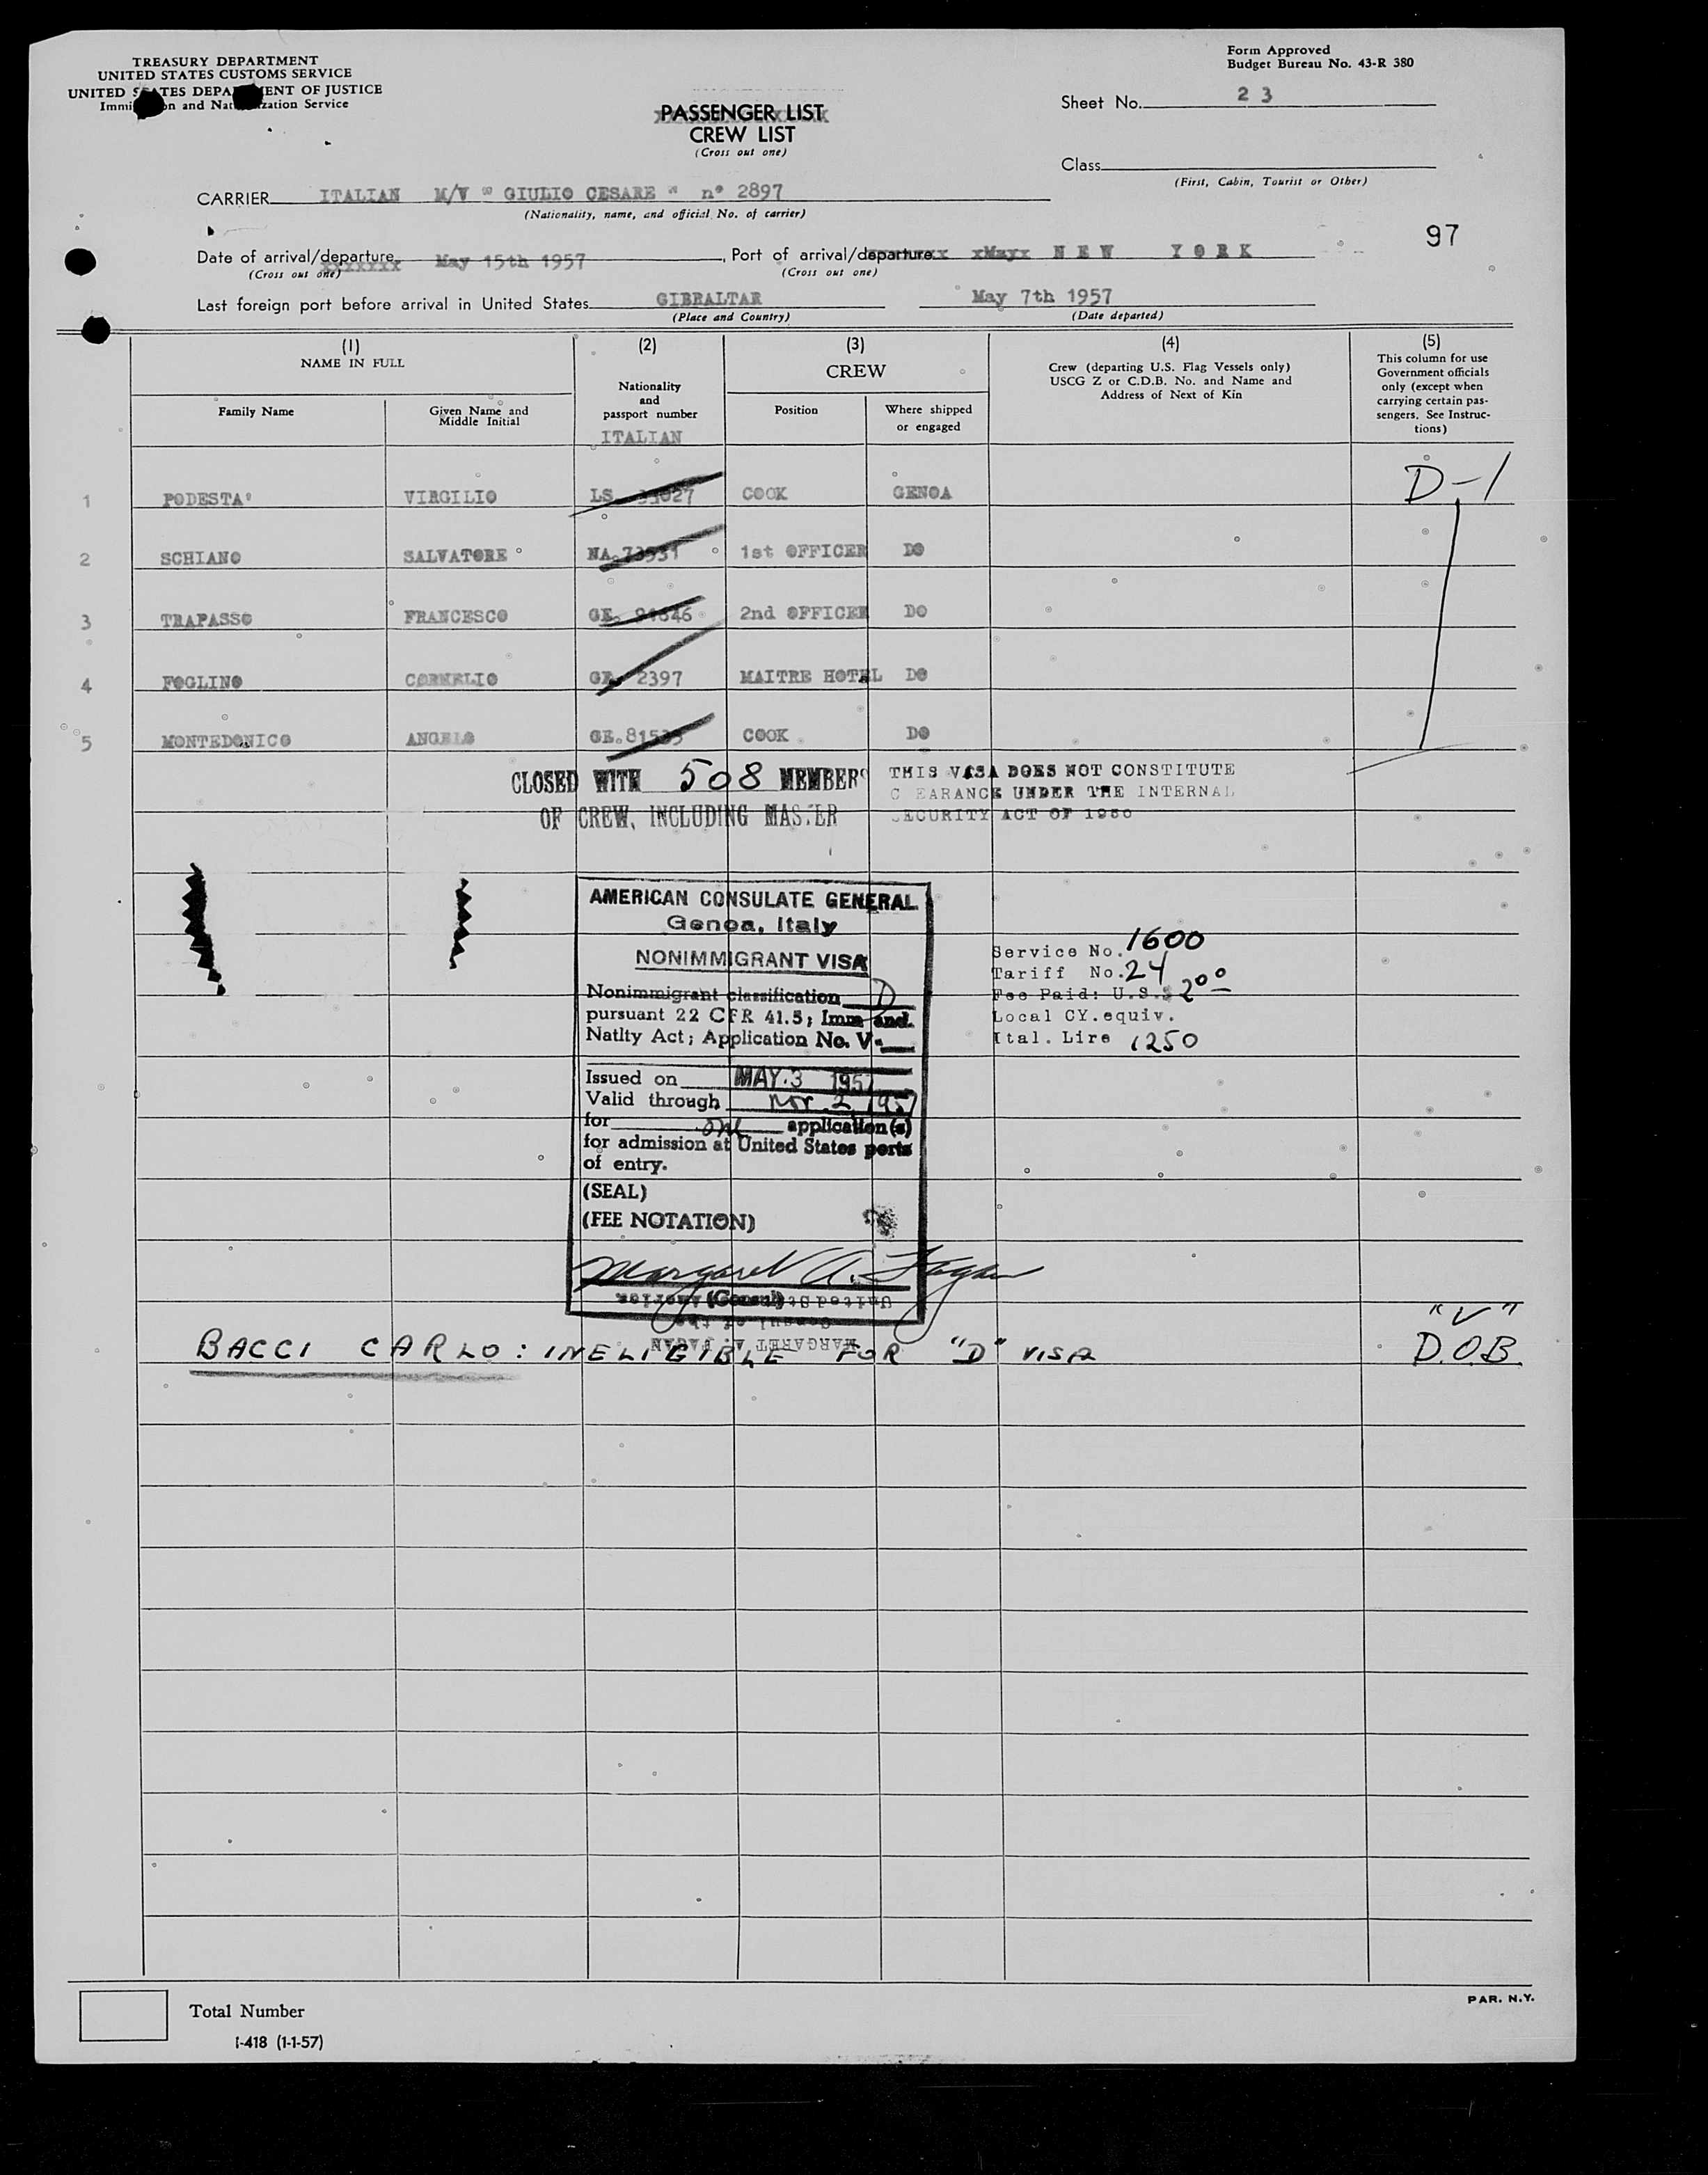 TREASURY DEPARTMENT
UNITED STATES CUSTOMS SERVICE
UNITED STATES DEPARTMENT OF JUSTICE
Immigration and Naturalization Service
Form Approved
Budget Bureau No. 43-R 380
Sheet No. 23
PASSENGER LIST
CREW LIST
(Cross out one)
Class
(First, Cabin, Tourist or Other)
CARRIER ITALIAN M/V " GIULIO CESARE " n° 2897
(Nationality, name, and official No. of carrier)
97
Date of arrival/departure May 15th 1957, Port of arrival/departure xMayx NEW YORK
(Cross out one) (Cross out one)
Last foreign port before arrival in United States GIBRALTAR May 7th 1957
(Place and Country) (Date departed)
(1) (2) (3) (4) (5)
NAME IN FULL
Family Name
Given Name and
Middle Initial
Nationality
and
passport number
ITALIAN
CREW
Position
Where shipped
or engaged
Crew (departing U.S. Flag Vessels only)
USCG Z or C.D.B. No. and Name and
Address of Next of Kin
This column for use
Government officials
only (except when
carrying certain pas-
sengers. See Instruc-
tions)
1 PODESTA' VIRGILIO LS. COOK GENOA D-1
2 SCHIANO SALVATORE NA. 1st OFFICER DO
3 TRAPASSO FRANCESCO GE. 2nd OFFICER DO
4 FOGLINO CORNELIO GE. 2397 MAITRE HOTEL DO
5 MONTEDONICO ANGELO GE. COOK DO
CLOSED WITH 508 MEMBERS
OF CREW, INCLUDING MASTER
THIS VISA DOES NOT CONSTITUTE
C EARANCE UNDER THE INTERNAL
SECURITY ACT OF 1950
AMERICAN CONSULATE GENERAL
Genoa, Italy
NONIMMIGRANT VISA
Nonimmigrant classification D
pursuant 22 CFR 41.5; Imm and.
Natlty Act; Application No. V-
Issued on MAY 3 1957
Valid through Nov. 2, 1957
for one application(s)
for admission at United States ports
of entry.
(SEAL)
(FEE NOTATION)
Margaret A. Fagan
(Consul)
United States America
Consul of the
MARGARET A. FAGAN
Service No. 1600
Tariff No. 24
Fee Paid: U.S.$ 2.00
Local CY. equiv.
Ital. Lire 1250
"V"
BACCI CARLO: INELIGIBLE FOR "D" VISA D.O.B.
Total Number
I-418 (1-1-57)
PAR. N.Y.